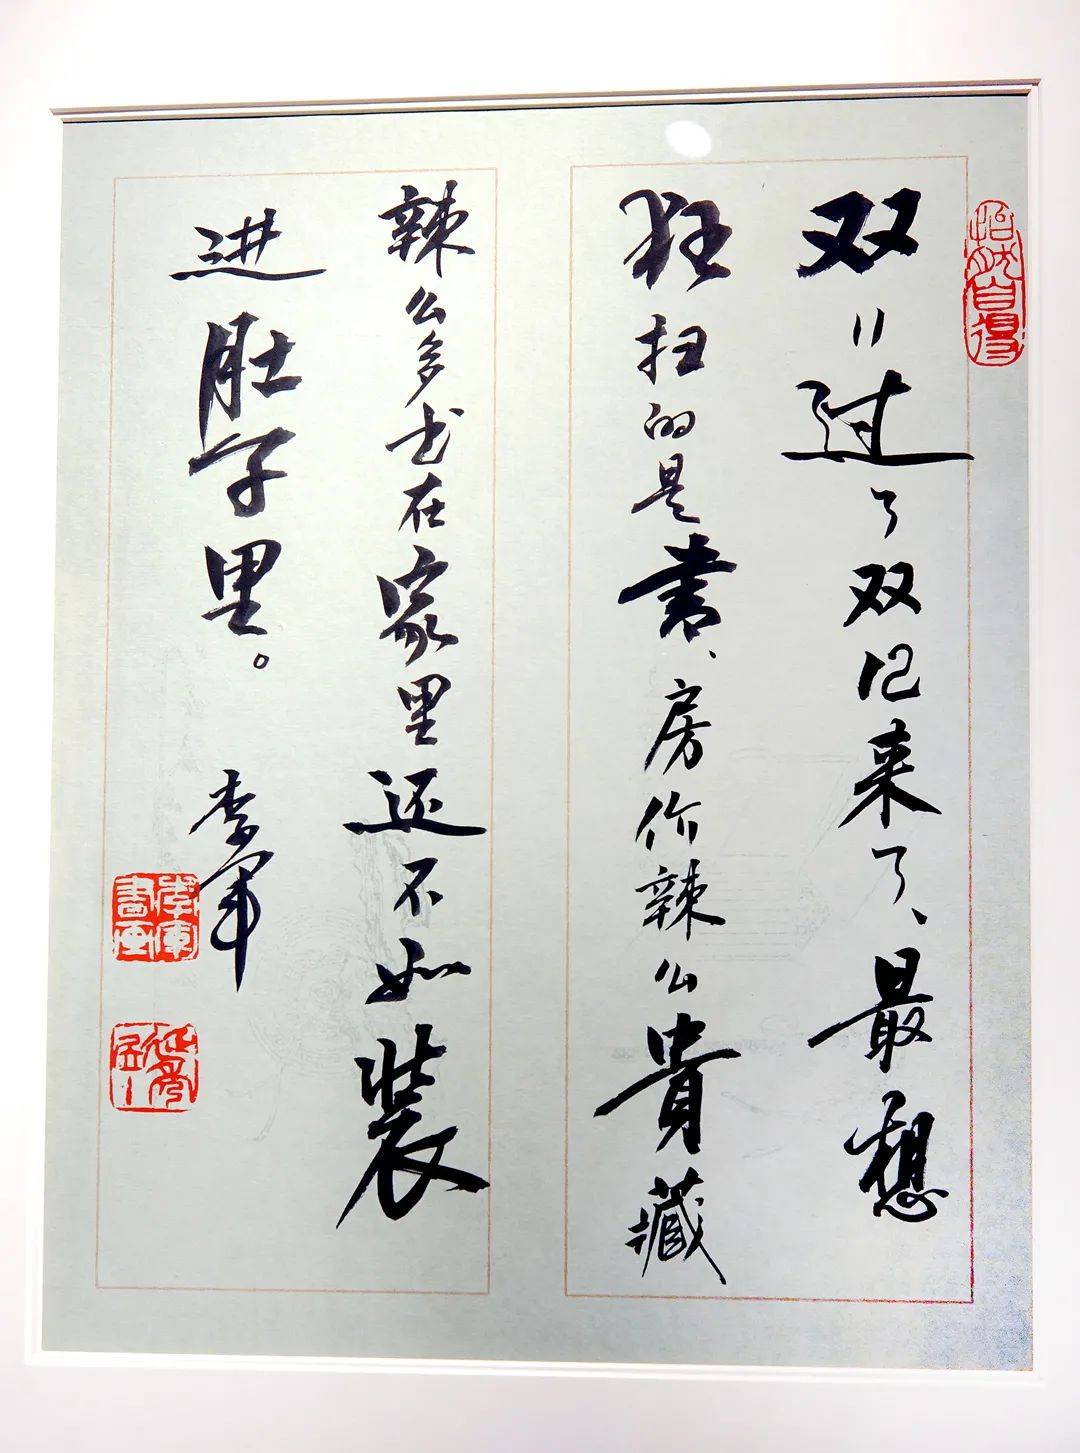 怡然自得
双11过了双12来了、最想
狂扫的是書、房价辣么貴藏
辣么多书在家里还不如装
进肚子里。
李军
李軍書画